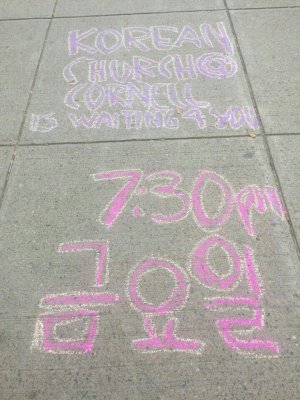 KOREAN
CHURCH@
CORNELL
IS WAITING 4 YOU
7:30pm
금요일